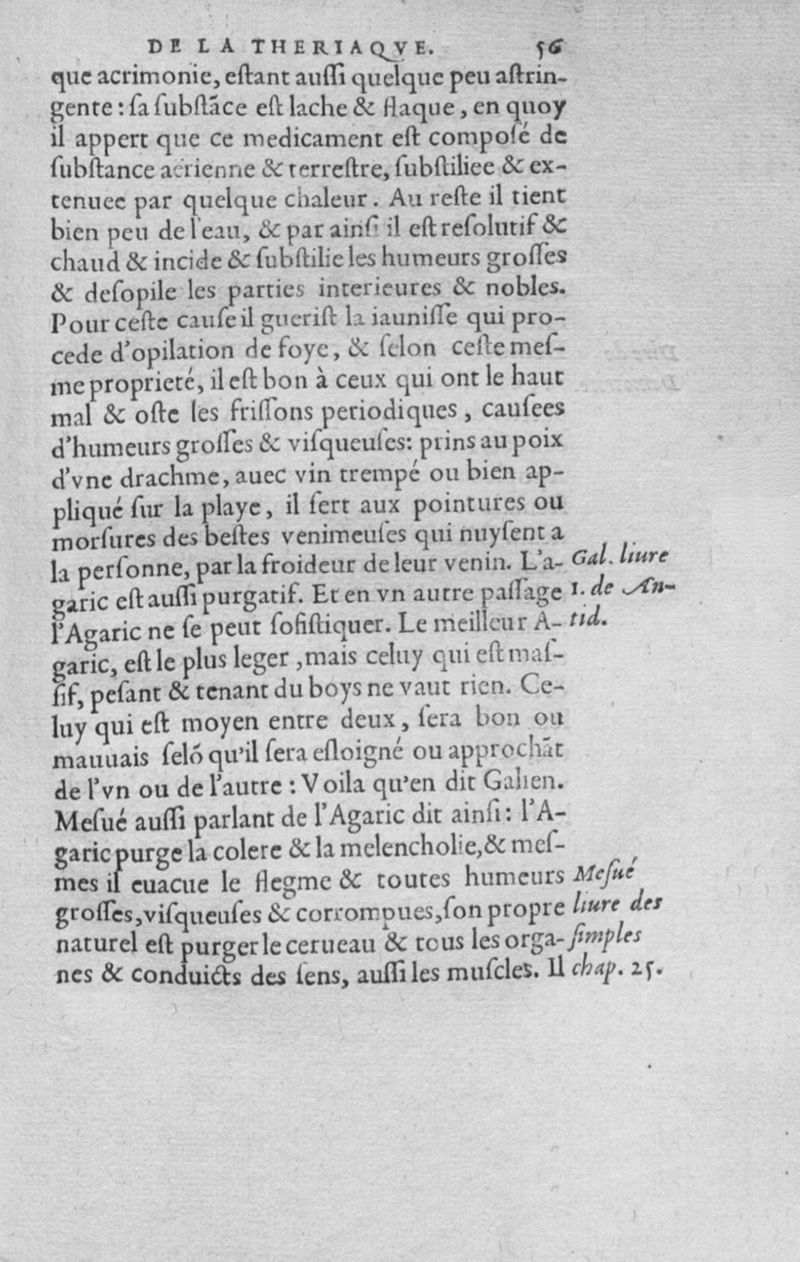 DE LA THERIAQVE. 56
que acrimonie, eſtant auſſi quelque peu aſtrin-
gente : ſa ſubſtãce eſt lache & flaque, en quoy
il appert que ce medicament eſt compoſé de
ſubſtance aërienne & terreſtre, ſubſtiliee & ex-
tenuee par quelque chaleur. Au reſte il tient
bien peu de l'eau, & par ainſi il eſt reſolutif &
chaud & incide & ſubſtilie les humeurs groſſes
& deſopile les parties interieures & nobles.
Pour ceſte cauſe il gueriſt la iauniſſe qui pro-
cede d'opilation de foye, & ſelon ceſte meſ-
me proprieté, il eſt bon à ceux qui ont le haut
mal & oſte les friſſons periodiques, cauſees
d'humeurs groſſes & viſqueuſes: prins au poix
d'vne drachme, auec vin trempé ou bien ap-
pliqué ſur la playe, il ſert aux pointures ou
morſures des beſtes venimeuſes qui nuyſent a
la perſonne, par la froideur de leur venin. L'a-
garic eſt auſſi purgatif. Et en vn autre paſſage
l'Agaric ne ſe peut ſofiſtiquer. Le meilleur A-
garic, eſt le plus leger, mais celuy qui eſt maſ-
ſif, peſant & tenant du boys ne vaut rien. Ce-
luy qui eſt moyen entre deux, ſera bon ou
mauuais ſelõ qu'il ſera eſloigné ou approchãt
de l'vn ou de l'autre : Voila qu'en dit Galien.
Meſué auſſi parlant de l'Agaric dit ainſi: l'A-
garic purge la colere & la melencholie, & meſ-
mes il euacue le flegme & toutes humeurs
groſſes, viſqueuſes & corrompues, ſon propre
naturel eſt purger le cerueau & tous les orga-
nes & conduicts des ſens, auſſi les muſcles. Il
Gal. liure
1. de An-
tid.
Meſué
liure des
ſimples
chap. 25.